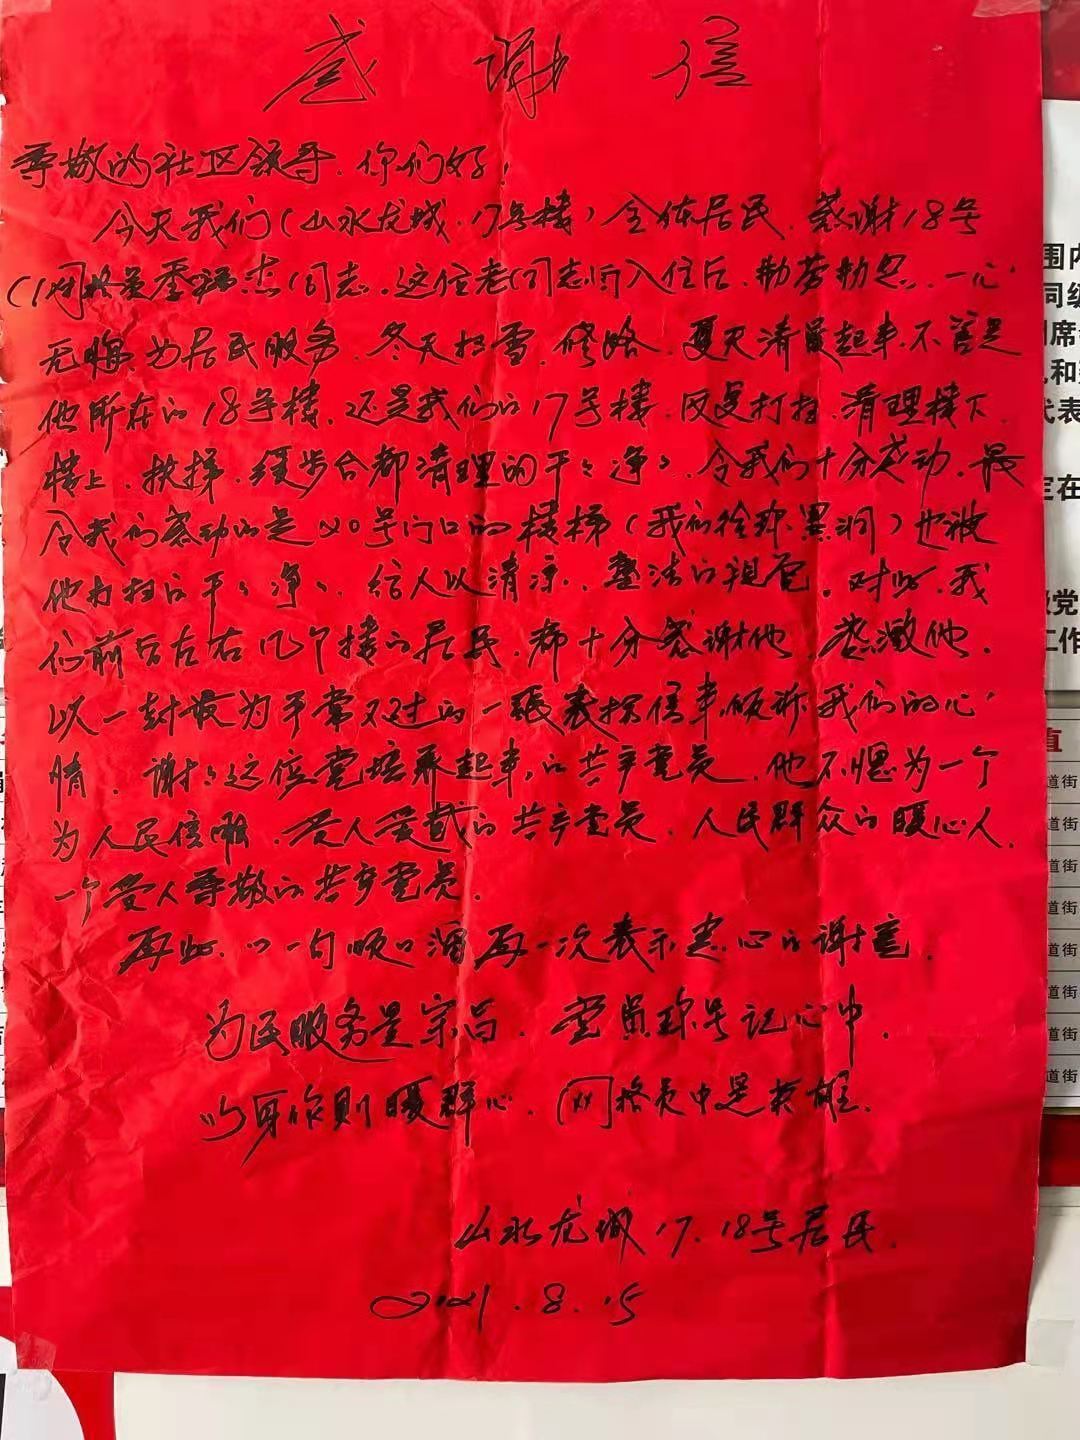 感谢信
尊敬的社区领导.你们好!
今天我们(山水龙城.17号楼)全体居民.感谢18号
(网格员季 杰)同志.这位老同志 入住后.勤劳勤恳.一心
无悔.为居民服务.冬天扫雪.修路.夏天清 起来.不管是
他所在的18号楼.还是我们的17号楼.反复打扫.清理楼下
楼上.扶梯.缓步台都清理的干々净々.令我们十分感动.最
令我们感动的是20号门口的楼梯(我们 称黑洞)也被
他打扫的干々净々.给人以清凉.整洁的 .对此.我
们前后左右几个楼的居民.都十分感谢他.感激他.
以一封最为平常不过的一张表扬信来倾诉我们的心
情.谢々这位党培养起来的共产党员.他不愧为一个
为人民信 .受人爱戴的共产党员.人民群众的暖心人.
一个受人尊敬的共产党员.
再此.以一句顺口溜再一次表示衷心的谢意.
为民服务是宗旨.党员称号记心中.
以身作则暖群心.网格员中是英雄.
山水龙城17.18号居民.
2021.8.15
围内
同级
席
和
代表
定在
党
工作
值
道街
道街
道街
道街
道街
道街
道街
道街